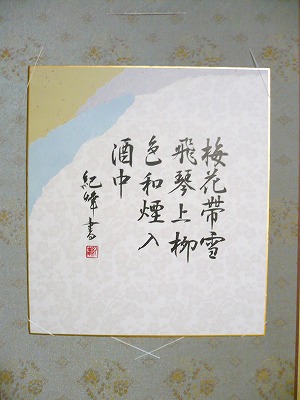 梅花帯雪
飛琴上柳
色和煙入
酒中
紀峰書